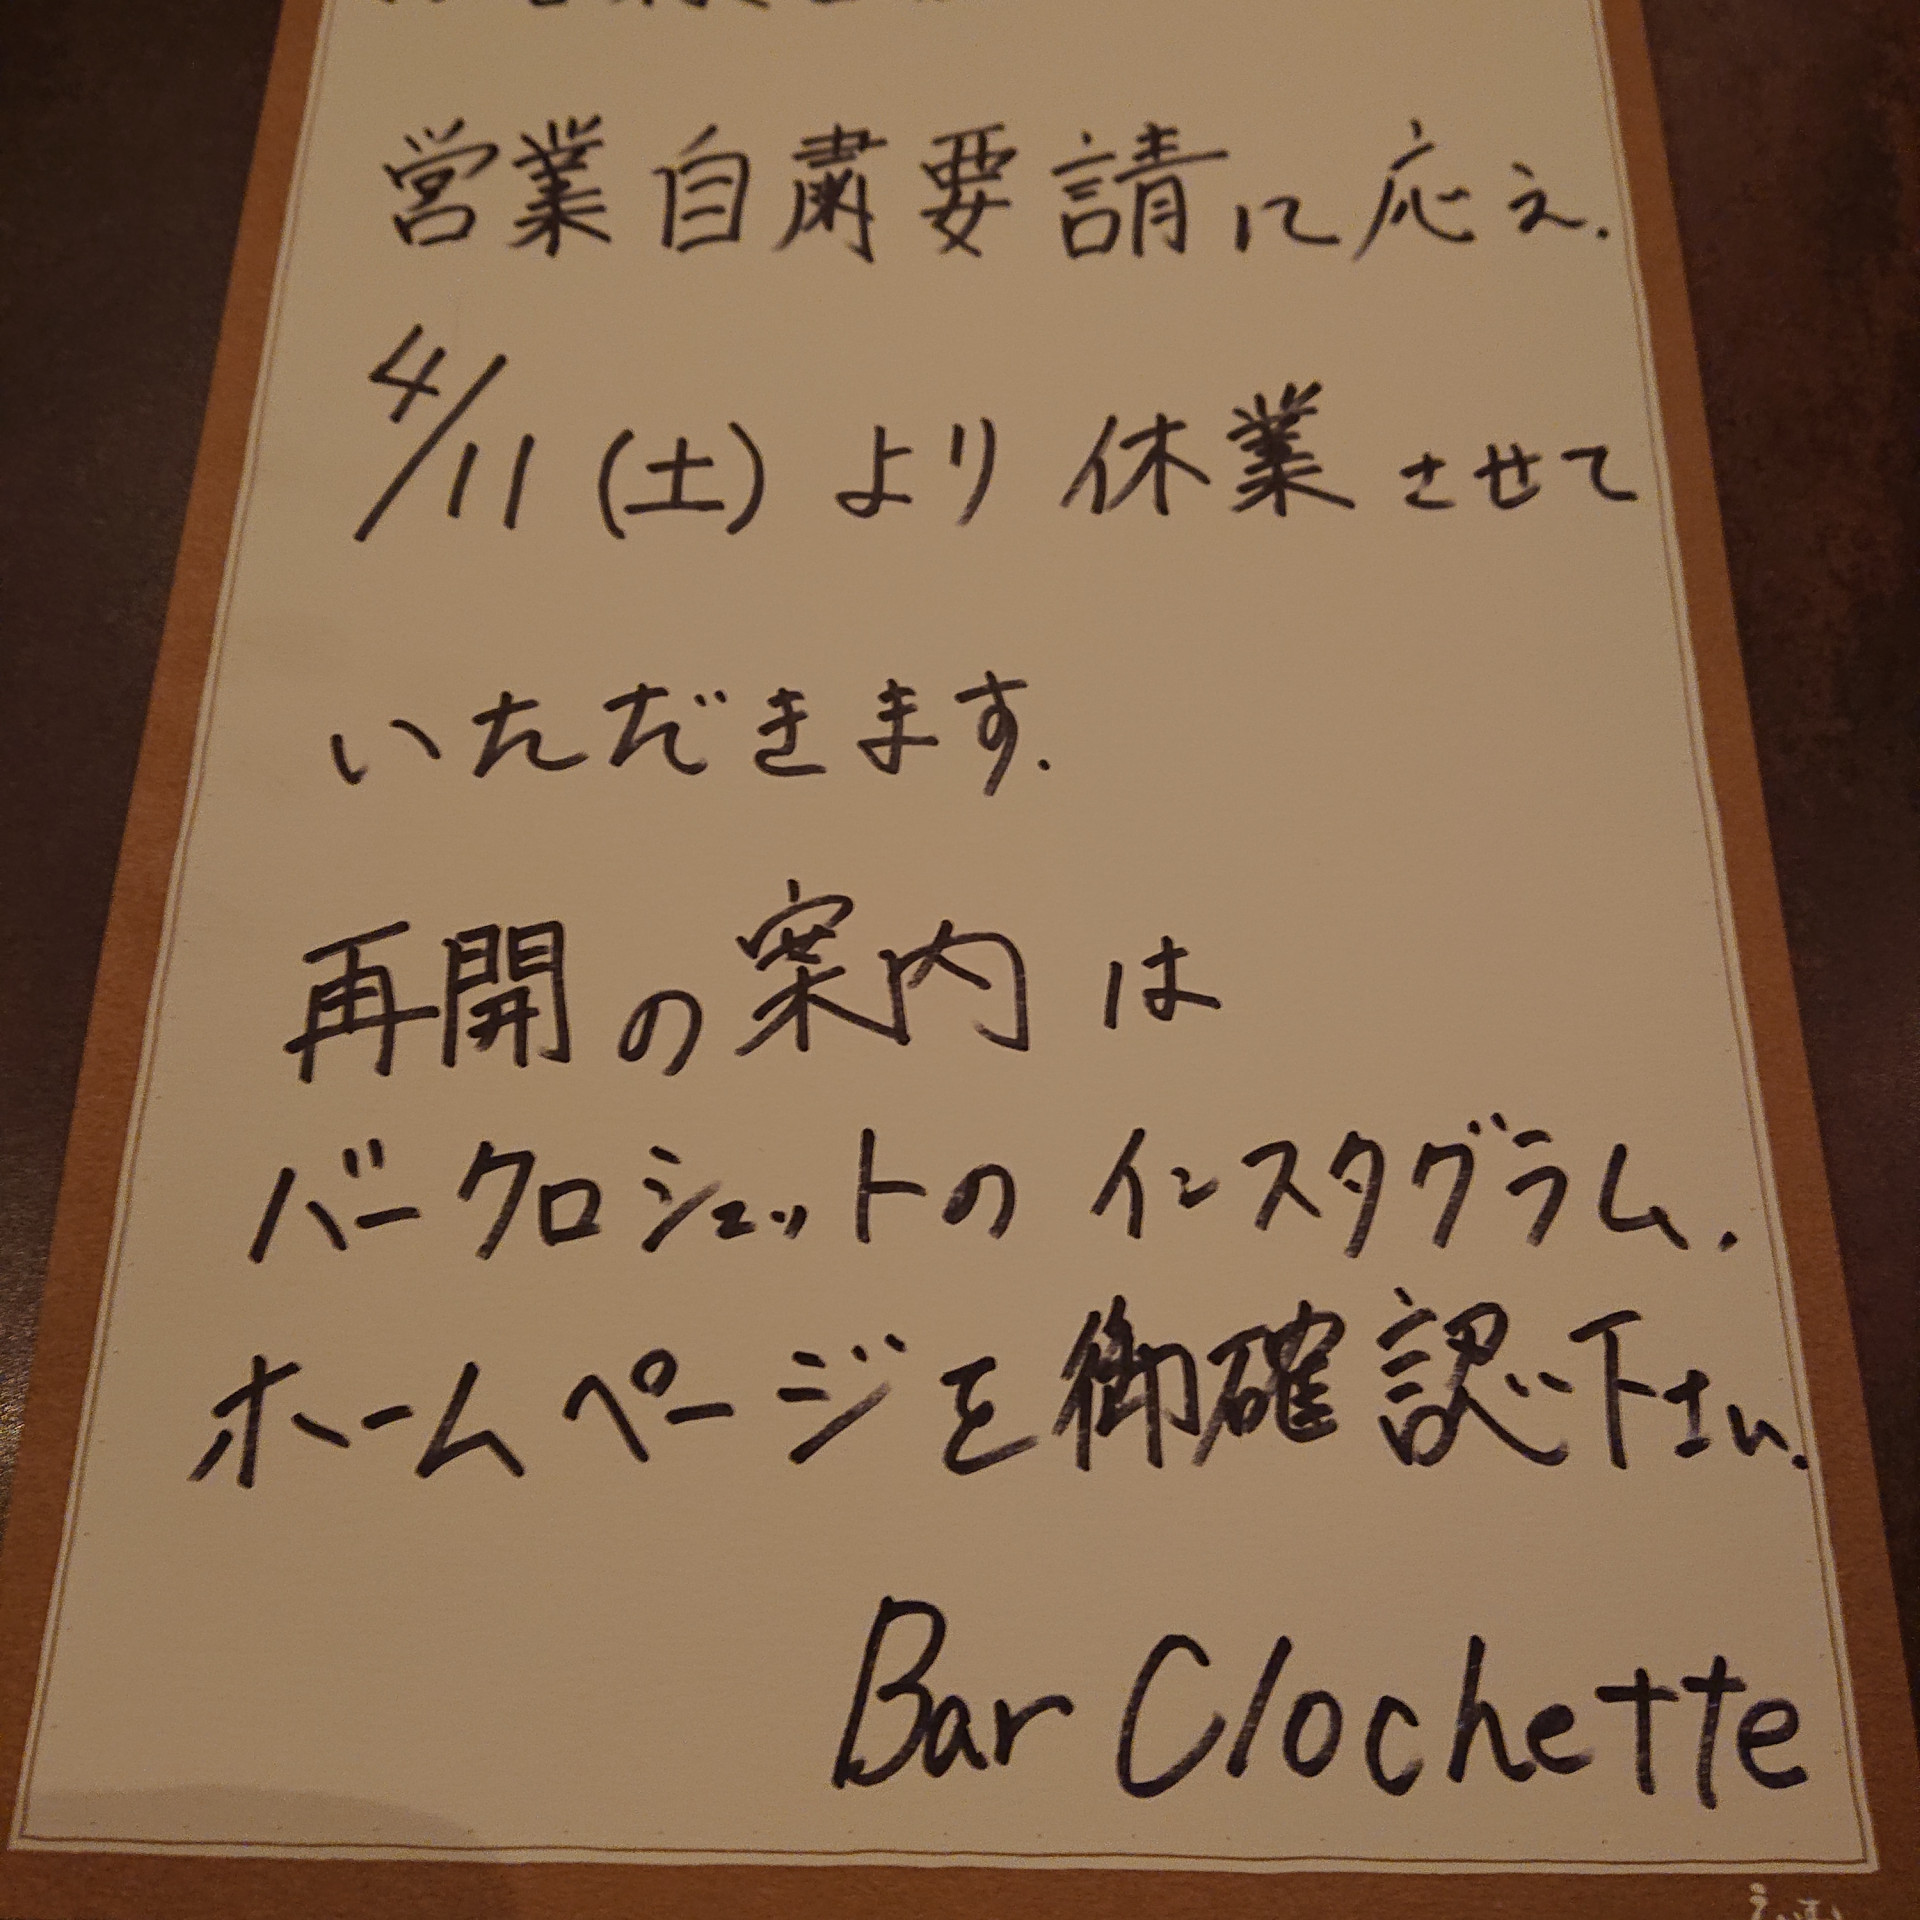 営業自粛要請に応え.
4/11(土)より休業させて
いただきます.
再開の案内は
バークロシェットのインスタグラム.
ホームページを御確認下さい.
Bar Clochette